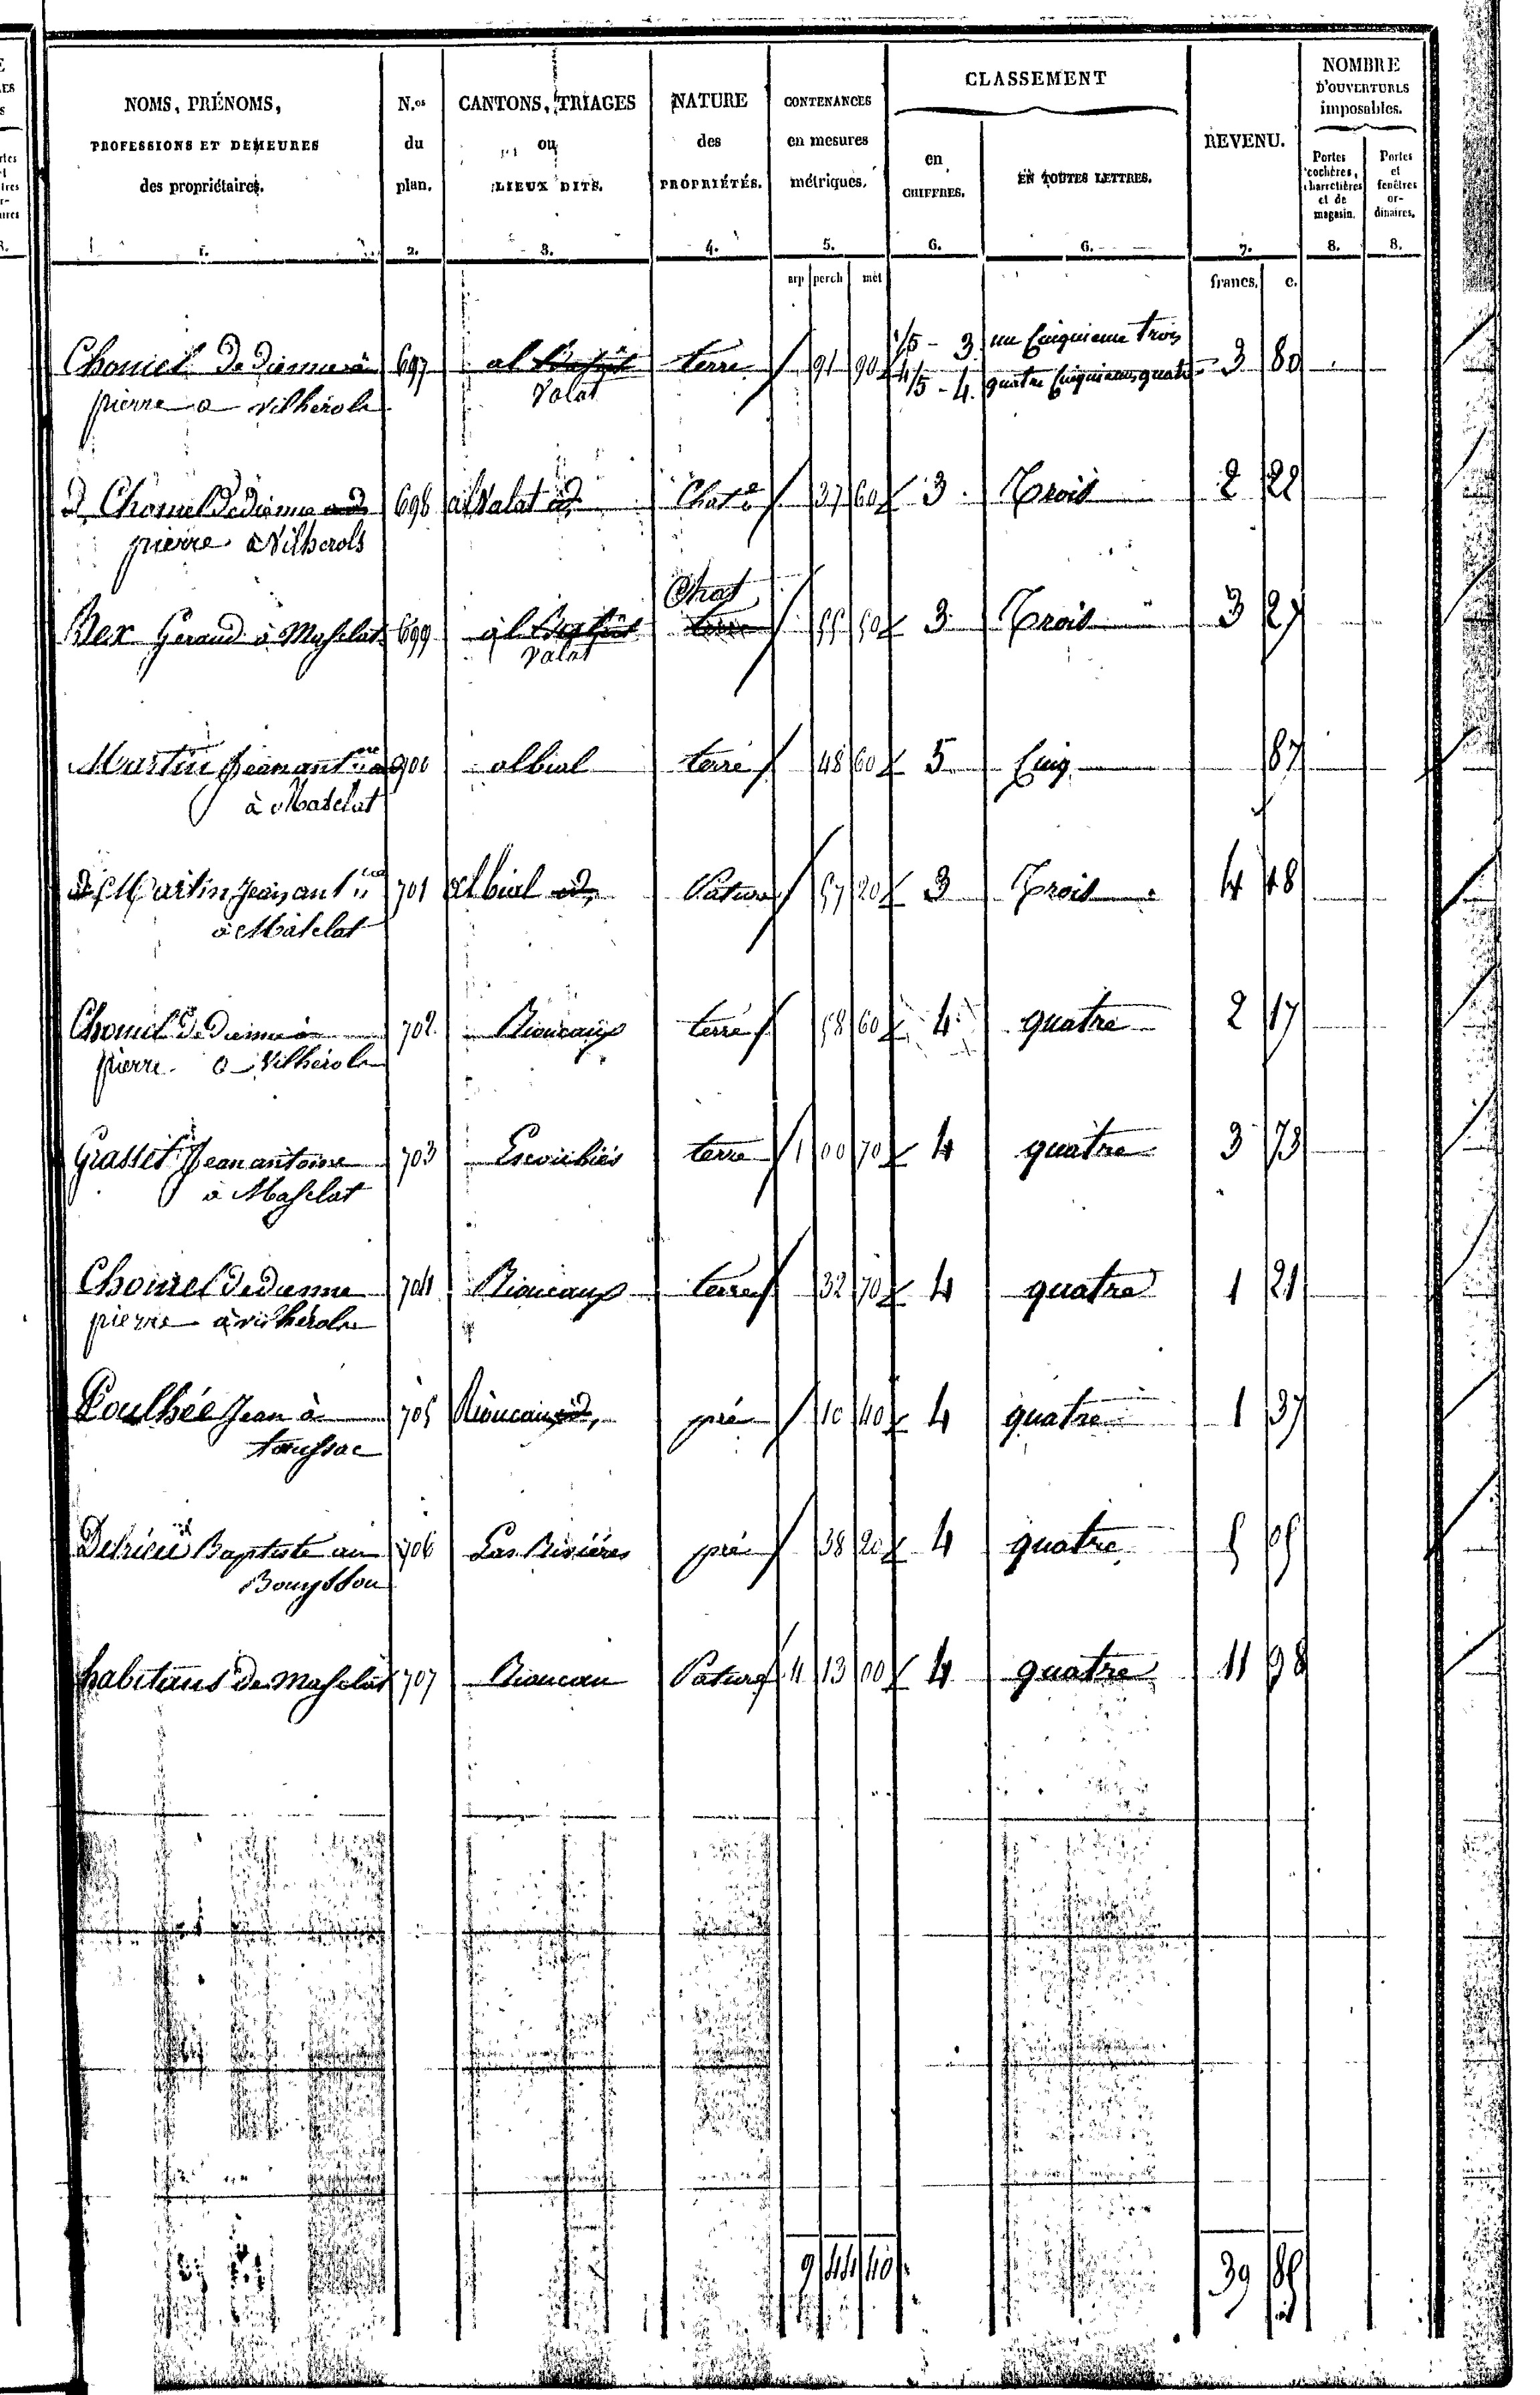 NOMS, PRÉNOMS, PROFESSIONS ET DEMEURES des propriétaires. 1.
N.os du plan. 2.
CANTONS, TRIAGES ou LIEUX DITS. 3.
NATURE des PROPRIÉTÉS. 4.
CONTENANCES en mesures métriques. 5.
CLASSEMENT
en CHIFFRES. 6.
EN TOUTES LETTRES. 6.
REVENU. 7.
NOMBRE D'OUVERTURES imposables.
Portes cochères, charretières et de magasin. 8.
Portes et fenêtres ordinaires. 8.
arp perch mèt francs, c.
Chomel Dedienne à 697 al terre 91 90 1/5 - 3 un Cinquieme trois 3 80
pierre a Vilhérols Valat 4/5 - 4. quatre Cinquiemes quatre
d. Chomel Dedienne 698 al Valat id Chat.e 37 60 3 Trois 2 22
pierre à Vilherols
Rex Geraud à Masselat 699 al Valat Chat terre 55 50 3 Trois 3 27
Martin Jean ant.ne 700 albial terre 48 60 5 Cinq 87
à Maselat
d. Martin Jean ant.ne 701 albial id, Pature 57 20 3 Trois 4 48
à Maselat
Chomel Dedienne à 702 Rioucaux terre 58 60 4 quatre 2 17
pierre a Vilhérols
Grasset Jean antoine 703 Escoubiés terre 1 00 70 4 quatre 3 73
à Masselat
Chomel Dedienne 704 Rioucaux terre 32 70 4 quatre 1 21
pierre à vilhérols
Poulhée Jean à 705 Rioucaux id, pré 10 40 4 quatre 1 37
taussac
Delrieu Baptiste au 706 Las Rivières pré 38 20 4 quatre 5 05
Bouyssou
habitans de Masselat 707 Rioucau Pature 4 13 00 4 quatre 11 98
9 44 40 39 85